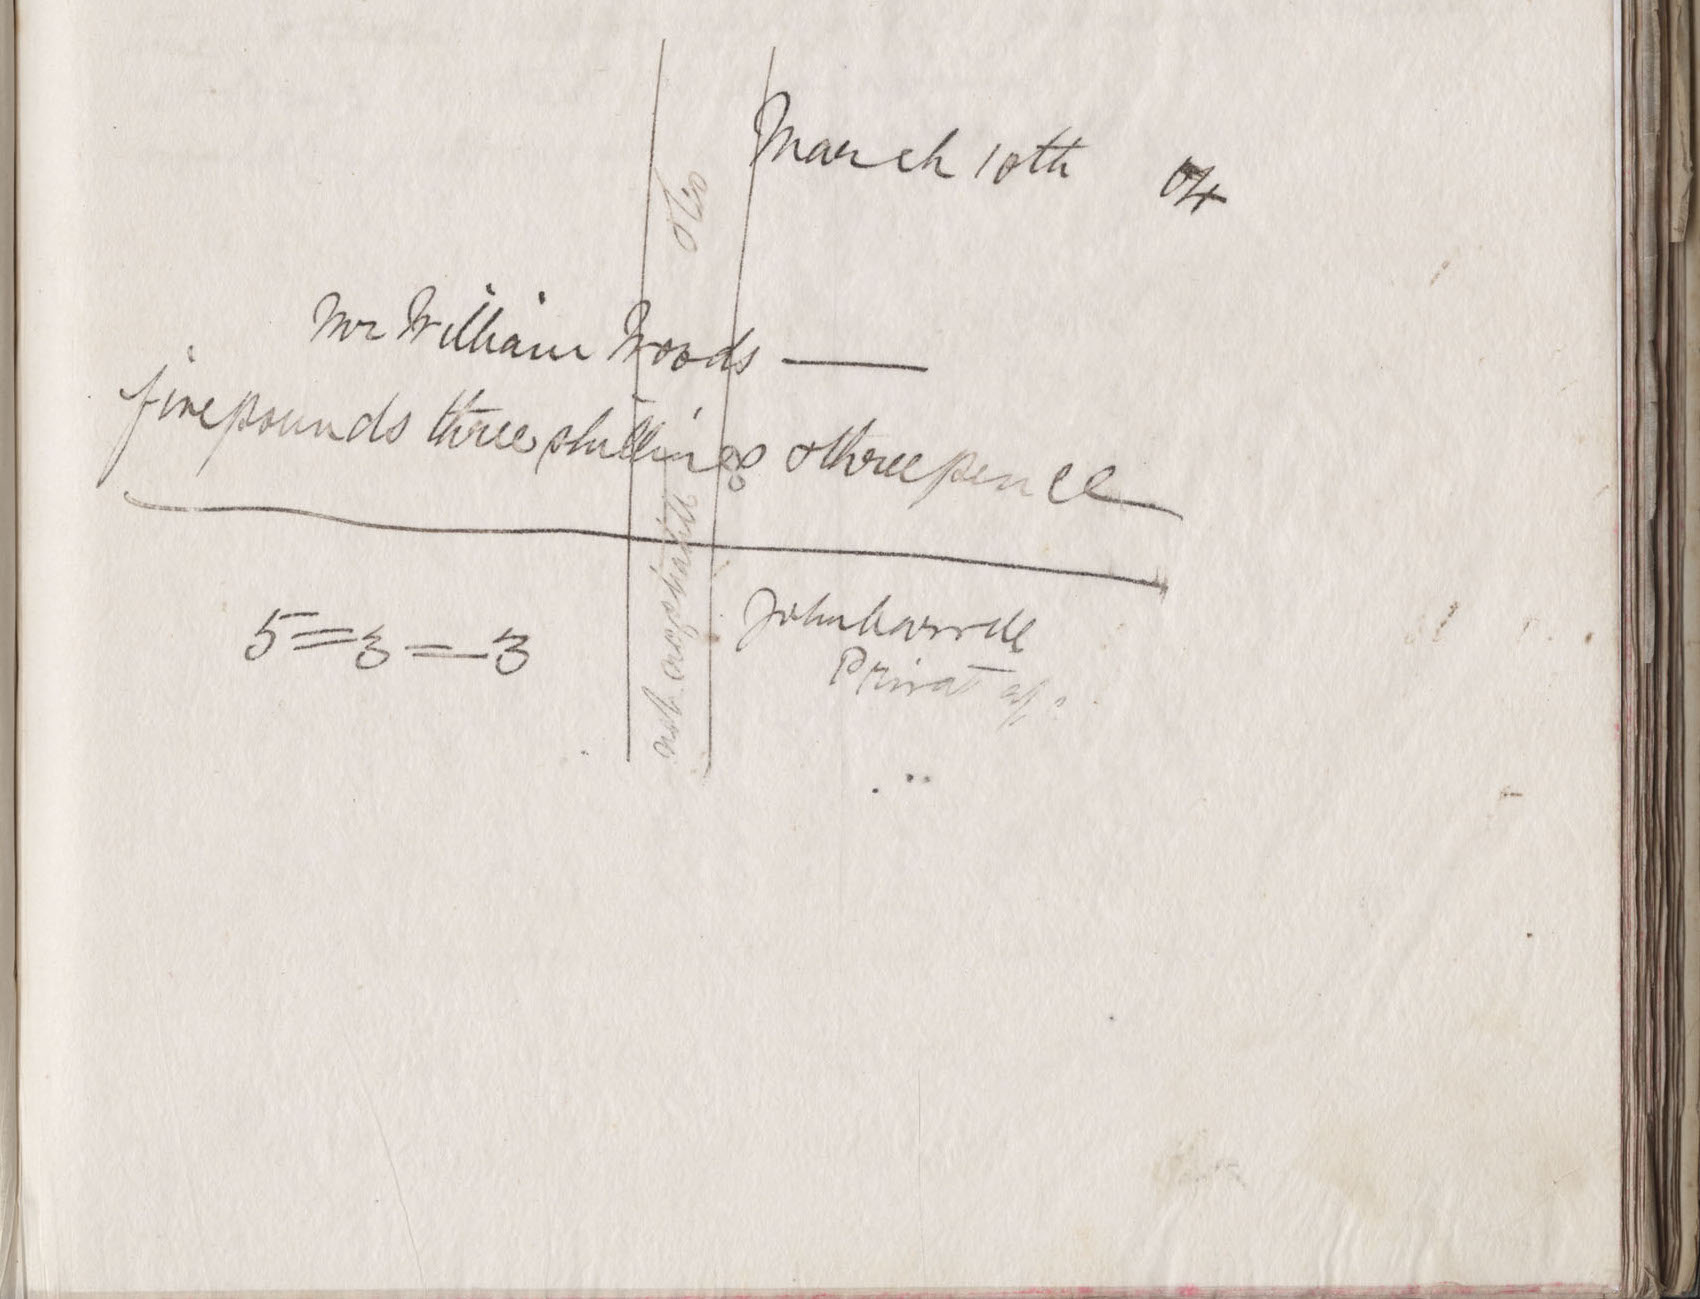 March 10th 04
Mr William Woods —
five pounds three shillings & three pence
5=3=3
John
Privat
& Co
not negotiable